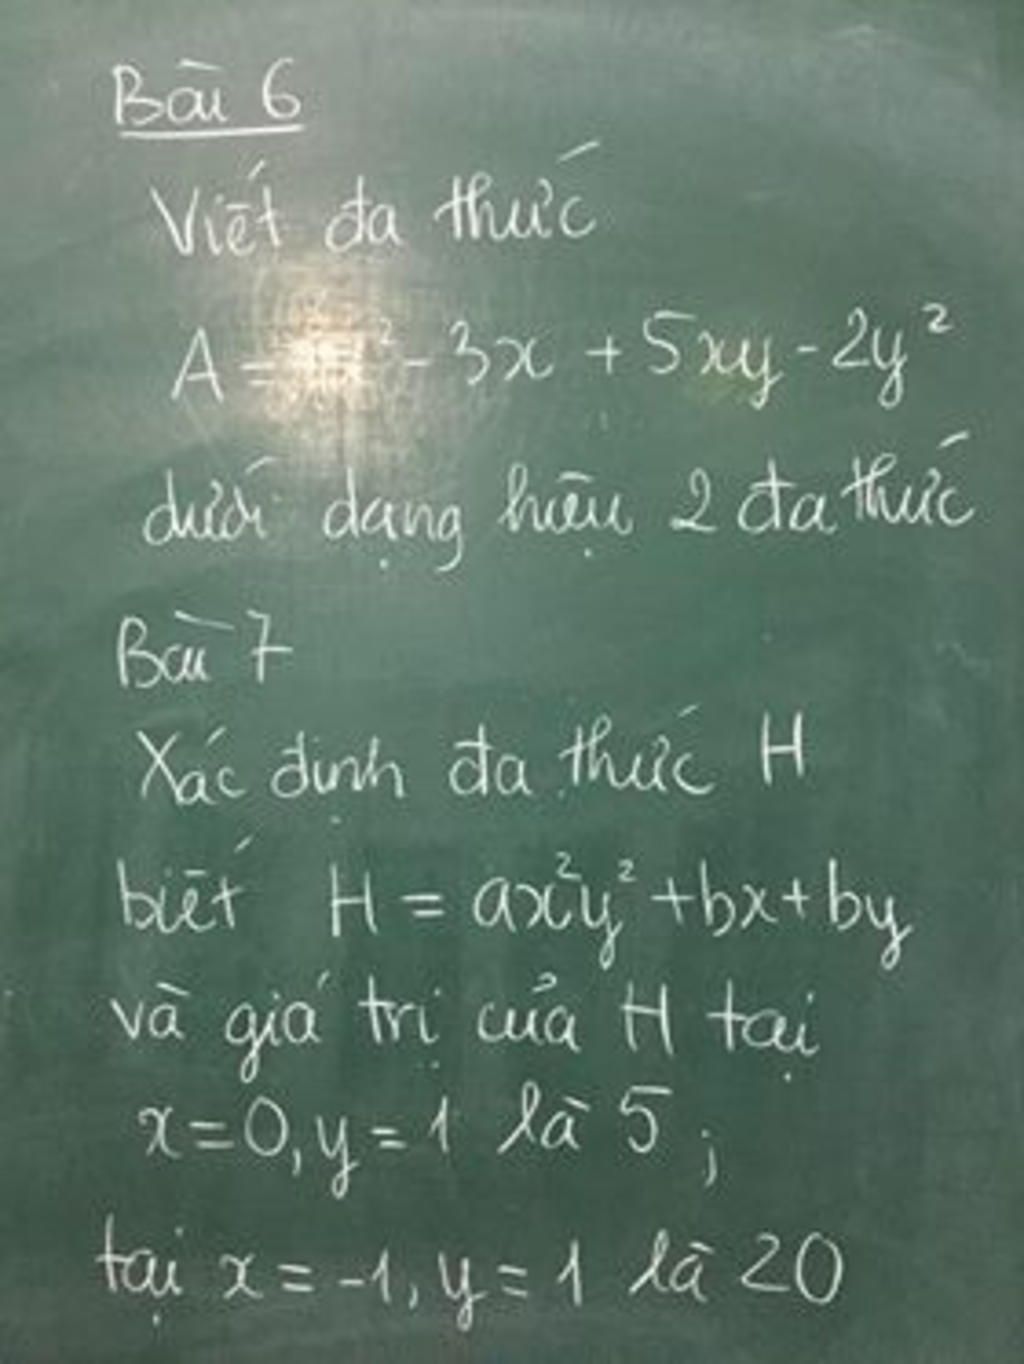 Bài 6
Viết đa thức
A = ² - 3x + 5xy - 2y²
dưới dạng hiệu 2 đa thức
Bài 7
Xác định đa thức H
biết H = ax²y² + bx + by
và giá trị của H tại
x = 0, y = 1 là 5 ;
tại x = -1, y = 1 là 20